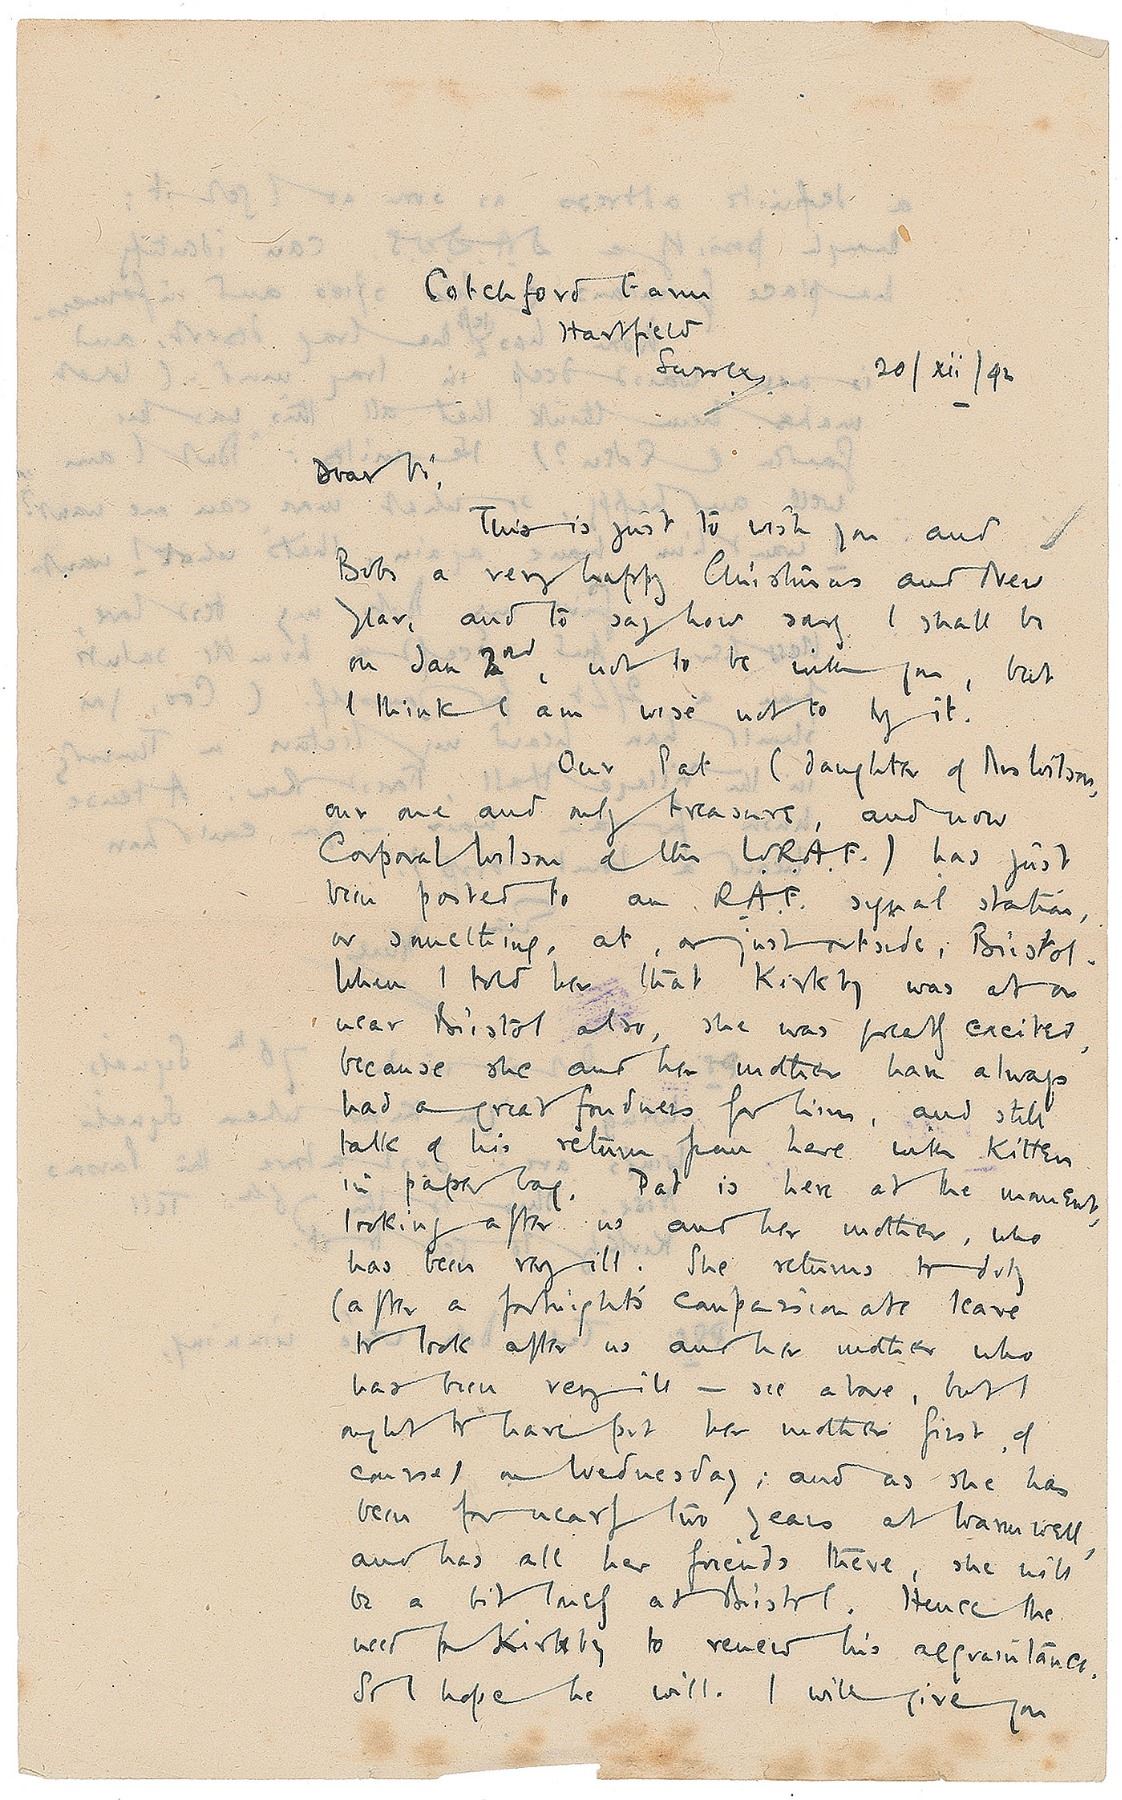 Cotchford Farm
Hartfield
Sussex.
20/xii/42
Dear Vi,
This is just to wish you and
Bobs a very happy Christmas and New
Year, and to say how sorry I shall be
on Jan 2nd, not to be with you, but
I think I am wise not to try it.
Our Pat (daughter of Mrs Wilson,
our one and only treasure, and now
Corporal Wilson of the W.R.A.F.) has just
been posted to an R.A.F. signal station,
or something, at, or just outside, Bristol.
When I told her that Kirkby was at or
near Bristol also, she was greatly excited,
because she and her mother have always
had a great fondness for him, and still
talk of his return from here with Kitten
in paper bag. Pat is here at the moment,
looking after us and her mother, who
has been very ill. She returns to duty
(after a fortnight's compassionate leave
to look after us and her mother who
has been very ill – see above, but I
ought to have put her mother first, of
course) on Wednesday; and as she has
been for nearly two years at Warmwell,
and has all her friends there, she will
be a bit lonely at Bristol. Hence the
need for Kirkby to renew his acquaintance.
So I hope he will. I will give you